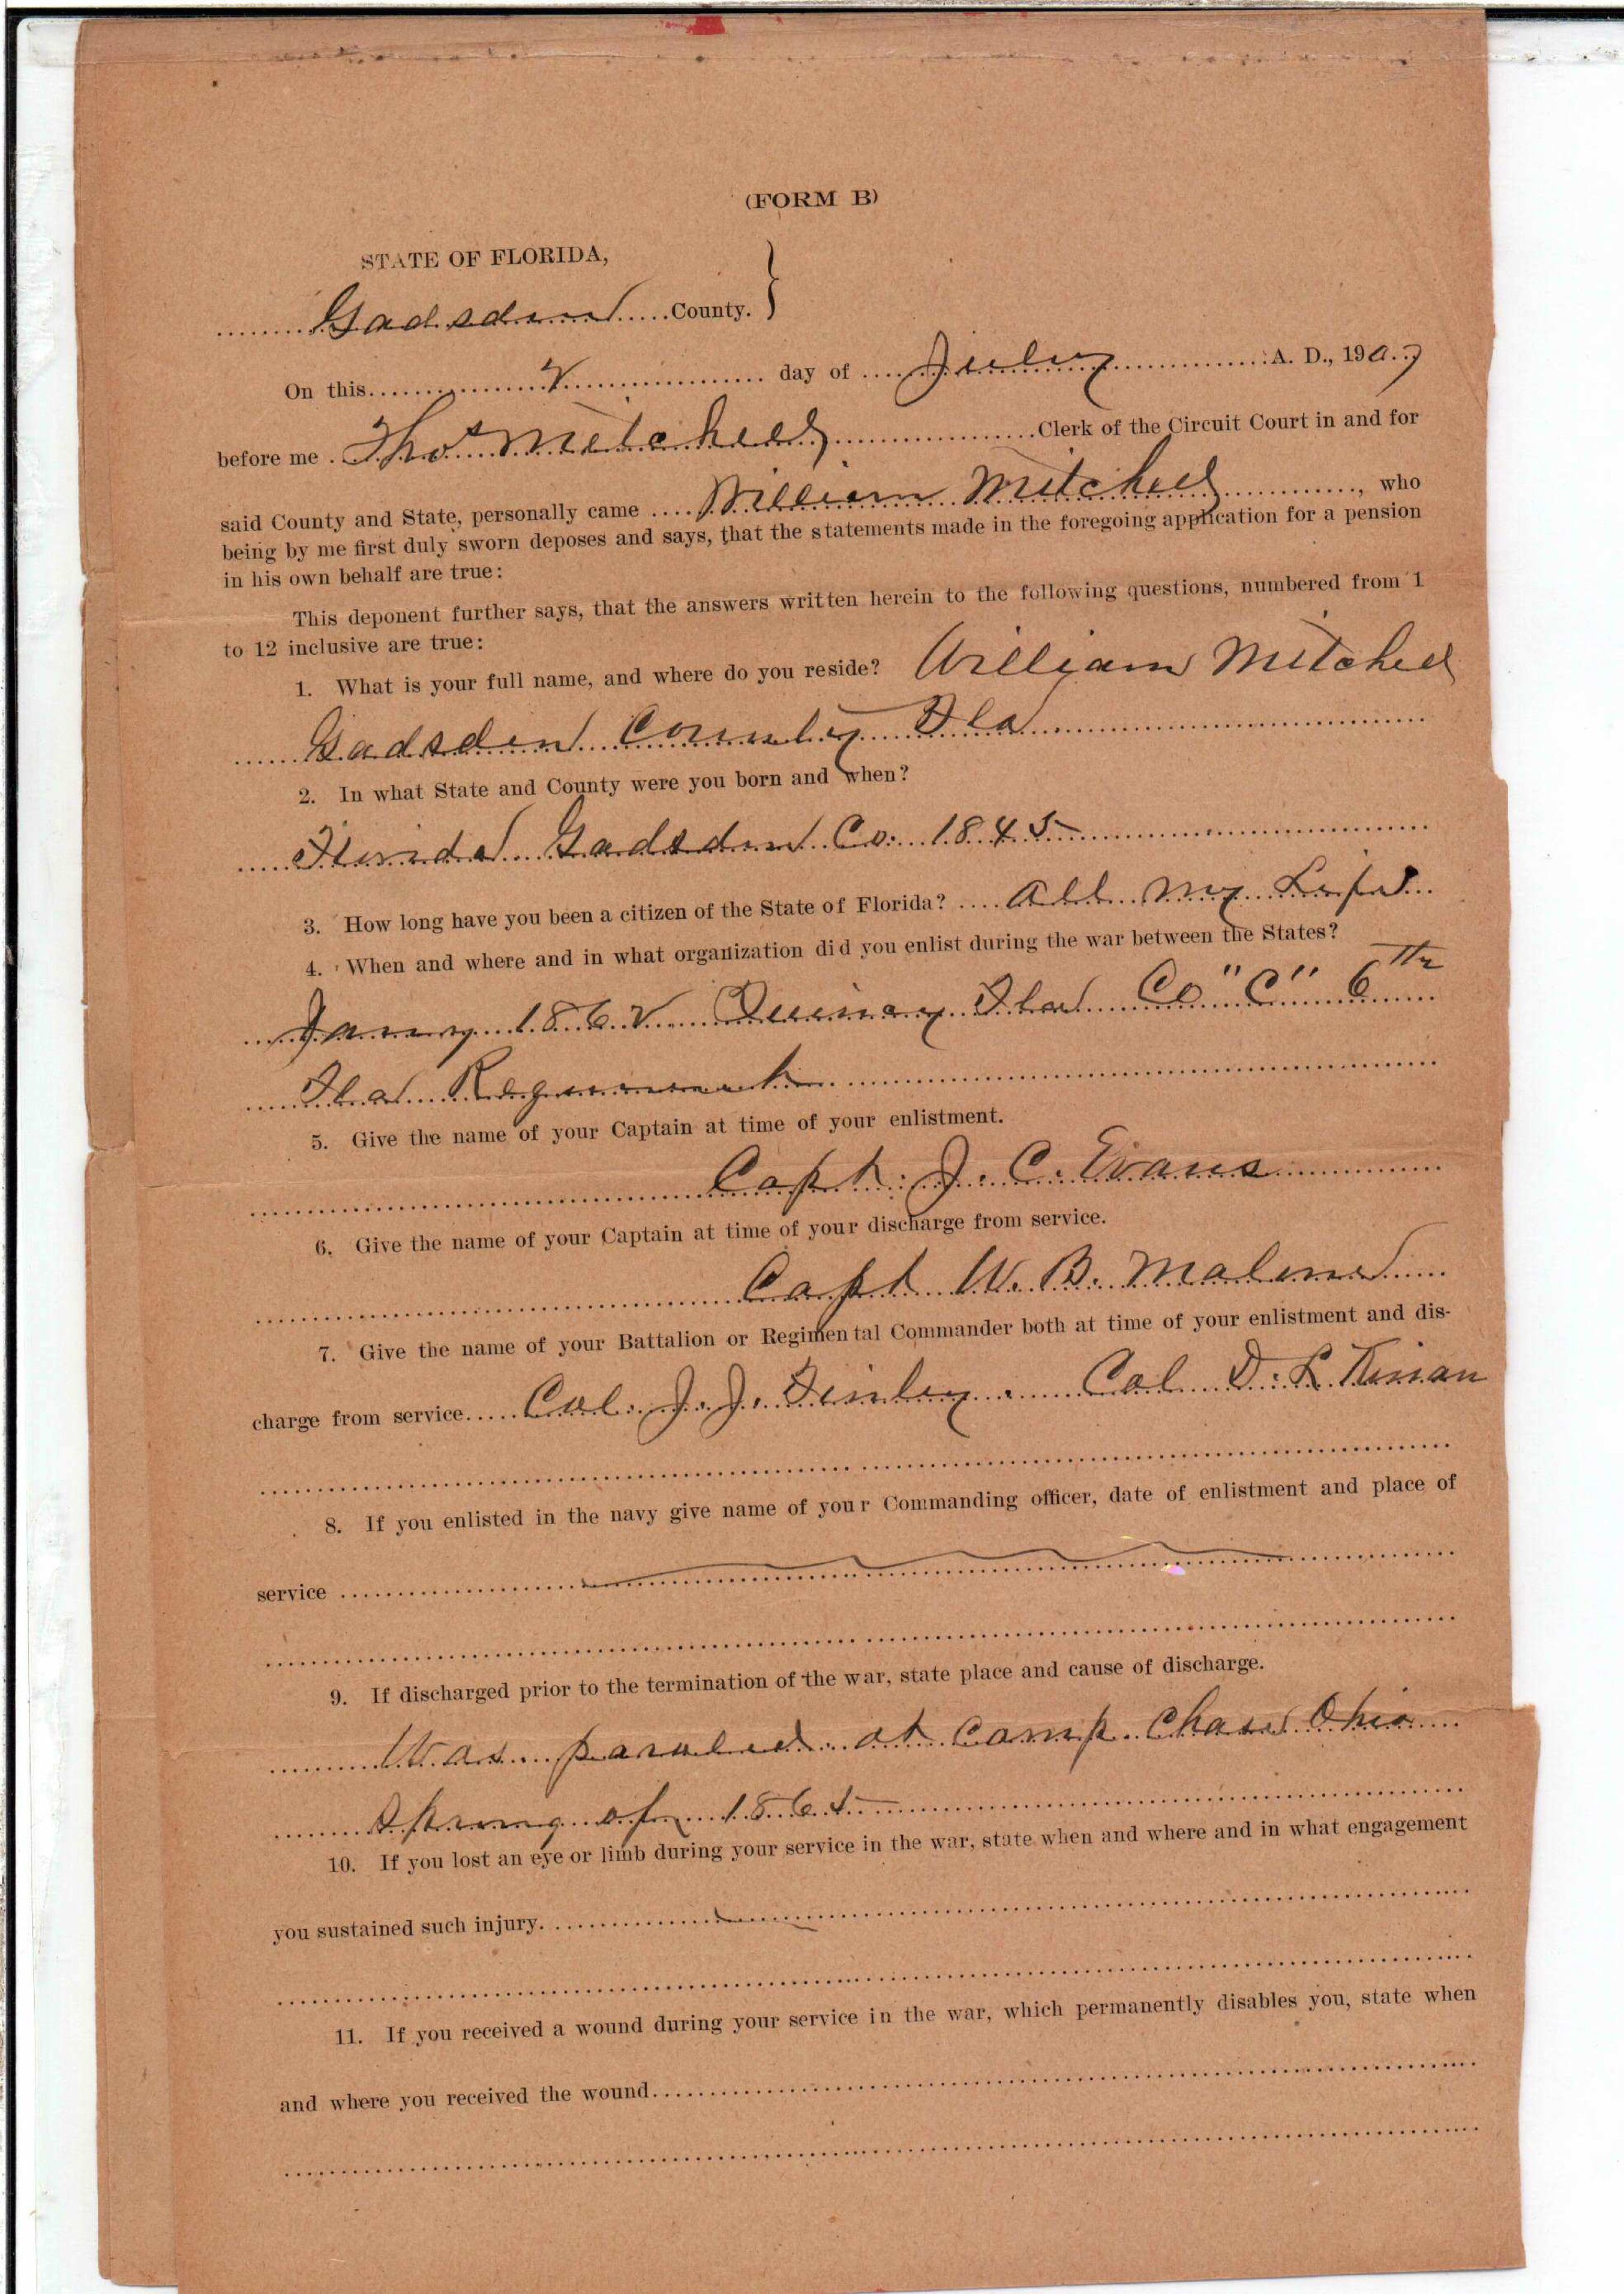 (FORM B)
STATE OF FLORIDA,
Gadsden County.
On this 2 day of July A. D., 1907
before me Thos Mitchell Clerk of the Circuit Court in and for
said County and State, personally came William Mitchell, who
being by me first duly sworn deposes and says, that the statements made in the foregoing application for a pension
in his own behalf are true:
This deponent further says, that the answers written herein to the following questions, numbered from 1
to 12 inclusive are true:
1. What is your full name, and where do you reside? William Mitchell
Gadsden County Fla
2. In what State and County were you born and when?
Florida Gadsden Co. 1845
3. How long have you been a citizen of the State of Florida? All my Life
4. When and where and in what organization did you enlist during the war between the States?
Jany 1862 Quincy Fla Co "C" 6th
Fla Regiment
5. Give the name of your Captain at time of your enlistment.
Capt. J. C. Evans
6. Give the name of your Captain at time of your discharge from service.
Capt W. B. Malone
7. Give the name of your Battalion or Regimental Commander both at time of your enlistment and dis-
charge from service Col. J. J. Finley. Col D. L. Kenan
8. If you enlisted in the navy give name of your Commanding officer, date of enlistment and place of
service
9. If discharged prior to the termination of the war, state place and cause of discharge.
Was paroled at Camp Chase Ohio
Spring of 1865
10. If you lost an eye or limb during your service in the war, state when and where and in what engagement
you sustained such injury.
11. If you received a wound during your service in the war, which permanently disables you, state when
and where you received the wound